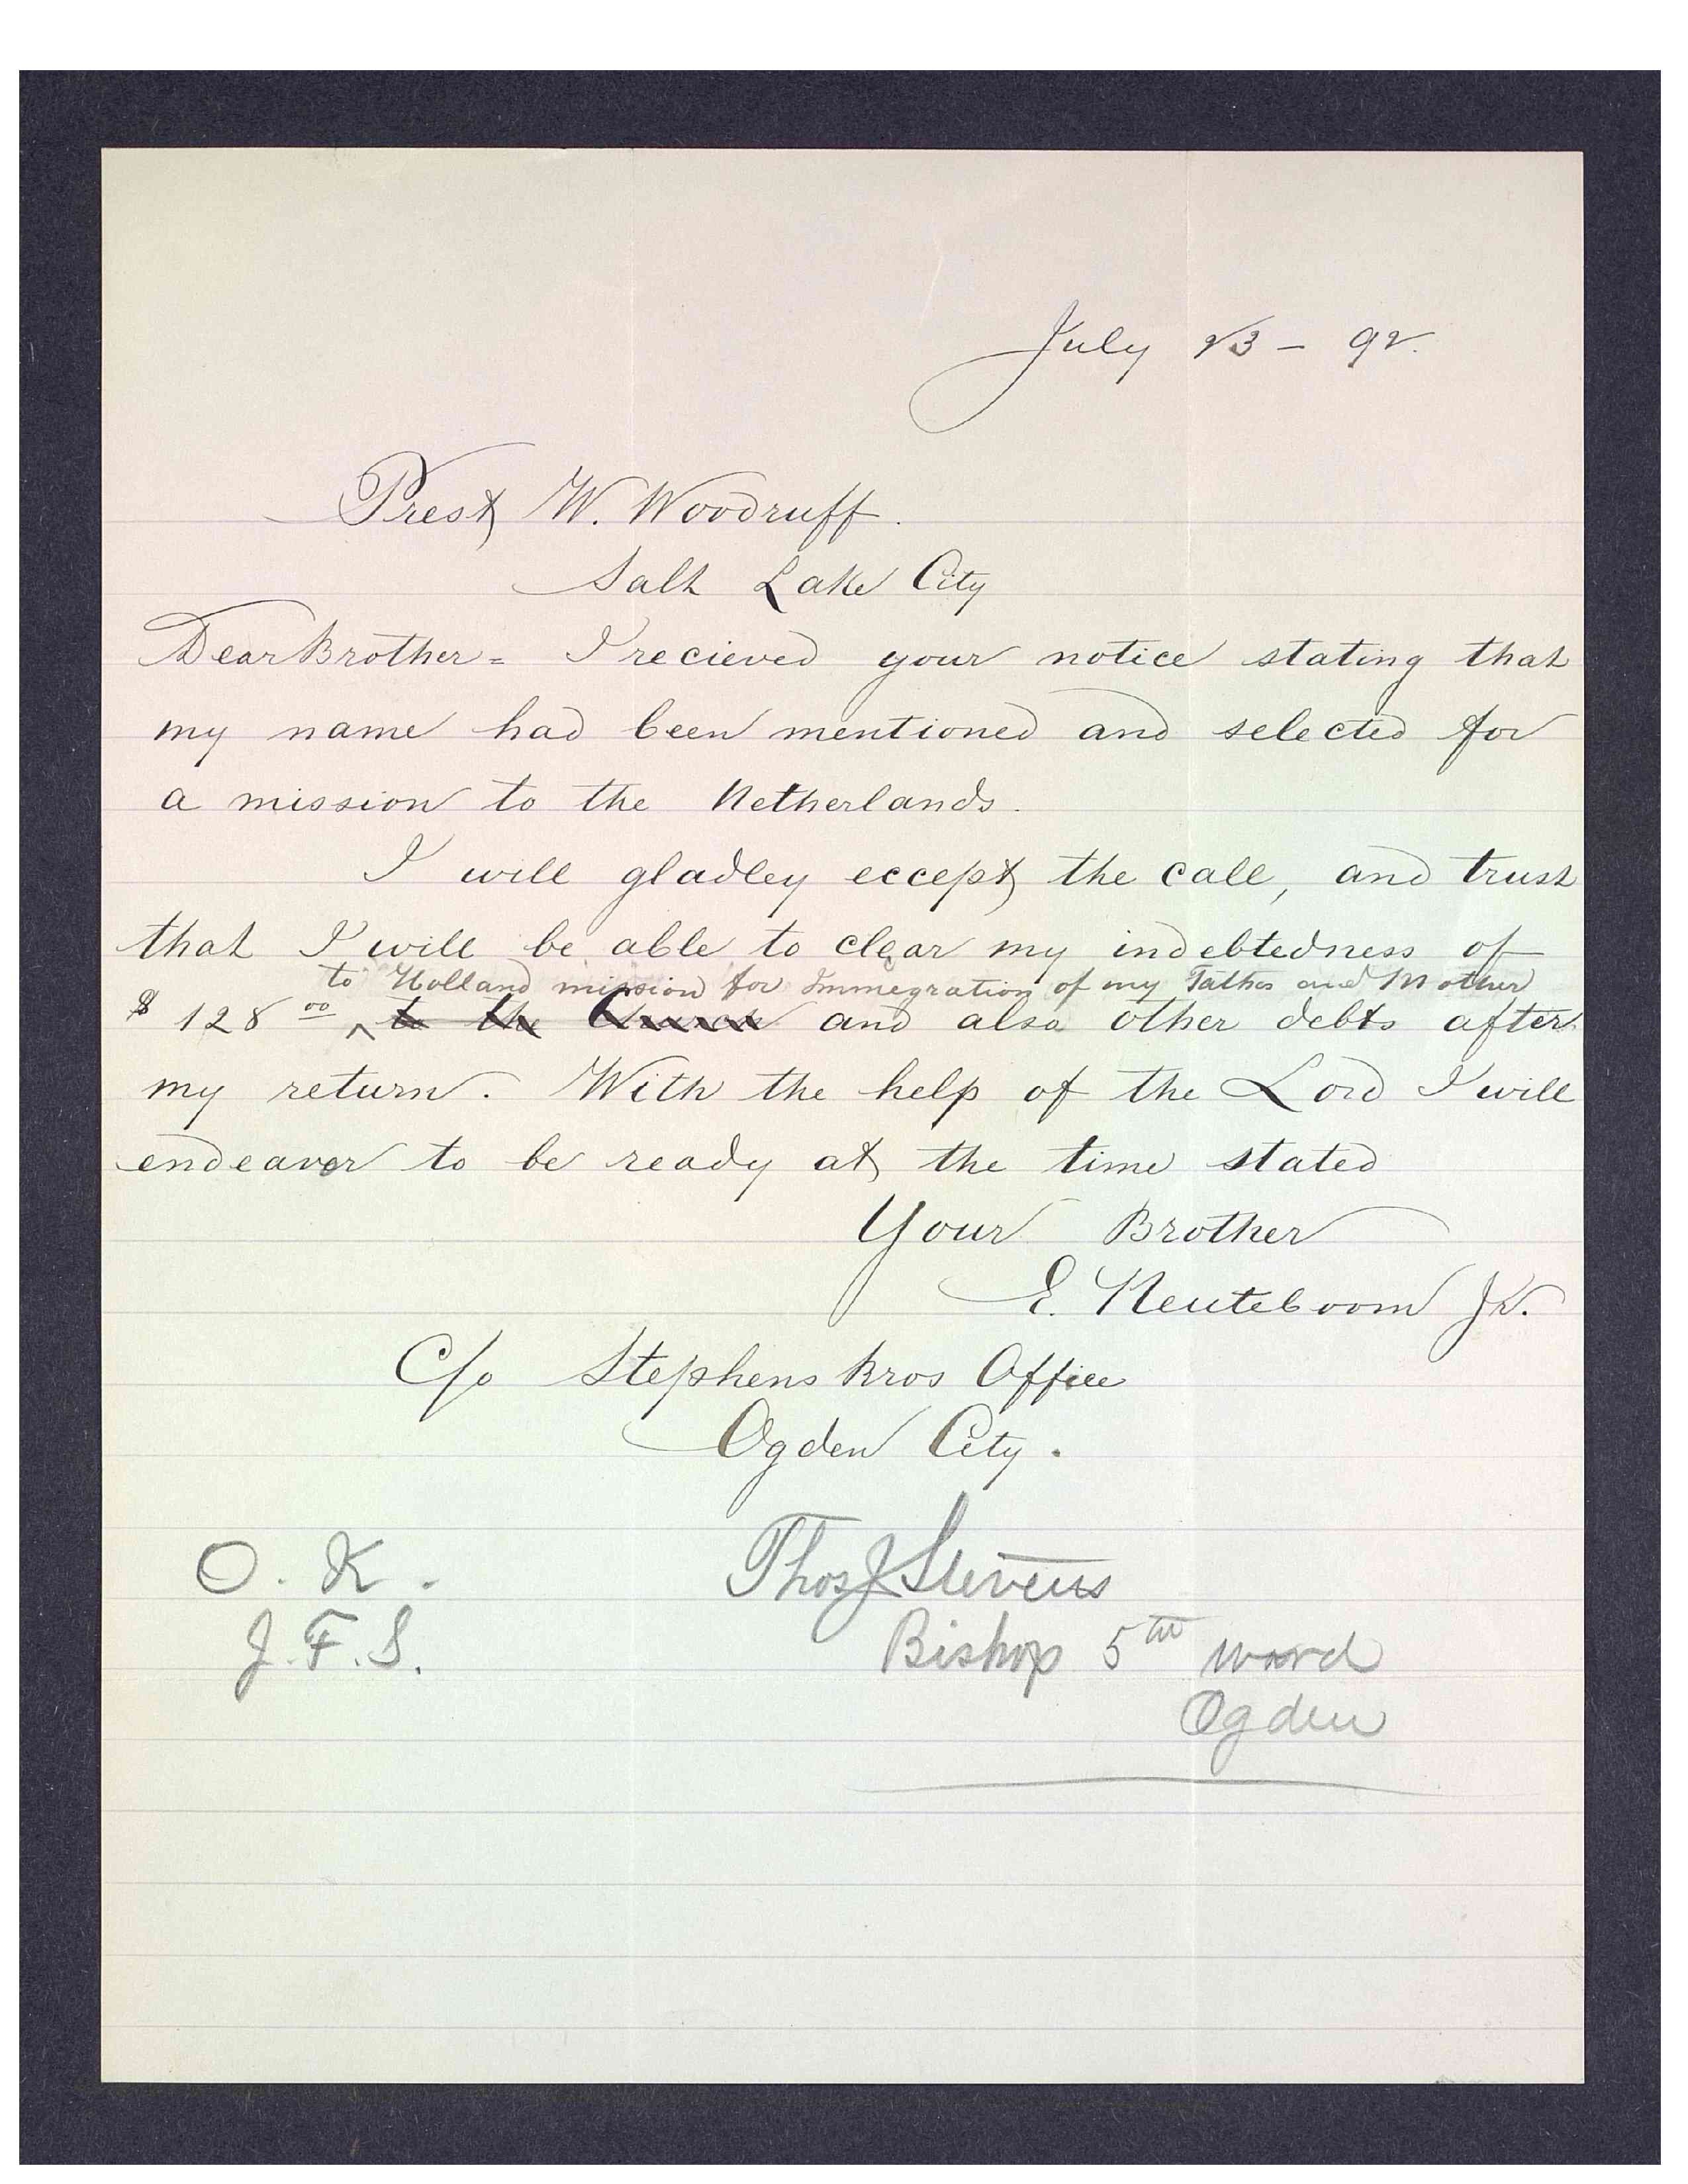 July 23 - 92.
Prest W. Woodruff.
Salt Lake City
Dear Brother = I recieved your notice stating that
my name had been mentioned and selected for
a mission to the Netherlands.
I will gladley eccept the call, and trust
that I will be able to clear my indebtedness of
to Holland mission for Immegration of my Father and Mother
$ 128 00 ^ to the Church and also other debts after
my return. With the help of the Lord I will
endeavor to be ready at the time stated
Your Brother
E. Neuteboom Jr.
C/o Stephens Bros Office
Ogden City.
O. K. Thos J Stevens
J. F. S. Bishop 5th ward
Ogden